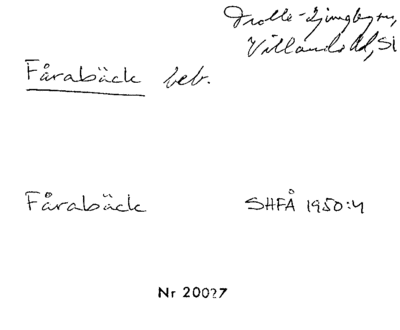 Trolle-Ljungbyn,
Villands hd, Sk
Fårabäck beb.
Fårabäck SHFÅ 1950:4
Nr 20027